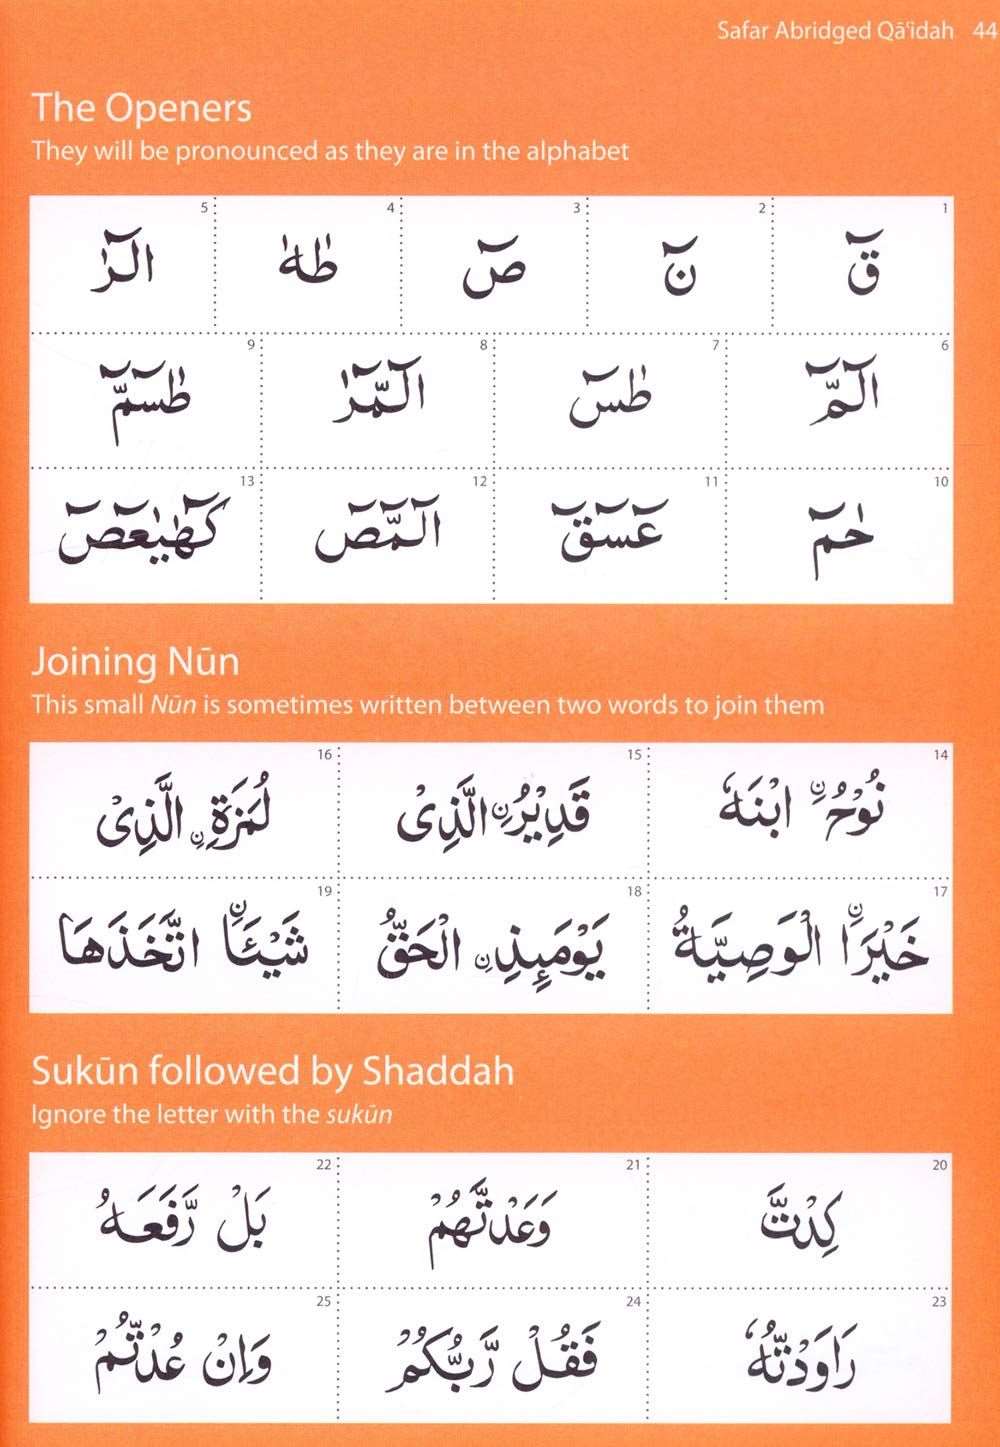 Safar Abridged Qāʿidah 44
The Openers
They will be pronounced as they are in the alphabet
1 2 3 4 5
قٓ نٓ صٓ طٰهٰ الٓرٰ
6 7 8 9
الٓمّٓ طٰسٓ الٓمّٓرٰ طٰسٓمّٓ
10 11 12 13
حٰمٓ عٓسٓقٓ الٓمّٓصٓ كٓهٰيٰعٓصٓ
Joining Nūn
This small Nūn is sometimes written between two words to join them
14 15 16
نُوْحُ ࣙنِ ابْنَهٗ قَدِيْرُ نِ الَّذِىْ لُمَزَةِ نِ الَّذِىْ
17 18 19
خَيْرَاۨ الْوَصِيَّةُ يَوْمَئِذِ نِ الْحَقُّ شَيْـَٔاۨ اتَّخَذَهَا
Sukūn followed by Shaddah
Ignore the letter with the sukūn
20 21 22
كِدْتَّ وَعَدْتَّهُمْ بَلْ رَّفَعَهُ
23 24 25
رَاوَدْتُّهٗ فَقُلْ رَّبُّكُمْ وَاِنْ عُدْتُّمْ